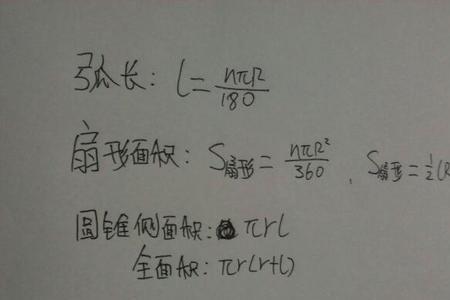 弧长: l=nπR/180
扇形面积: S扇形=nπR²/360 , S扇形=½lR
圆锥侧面积: πrl
全面积: πr(r+l)